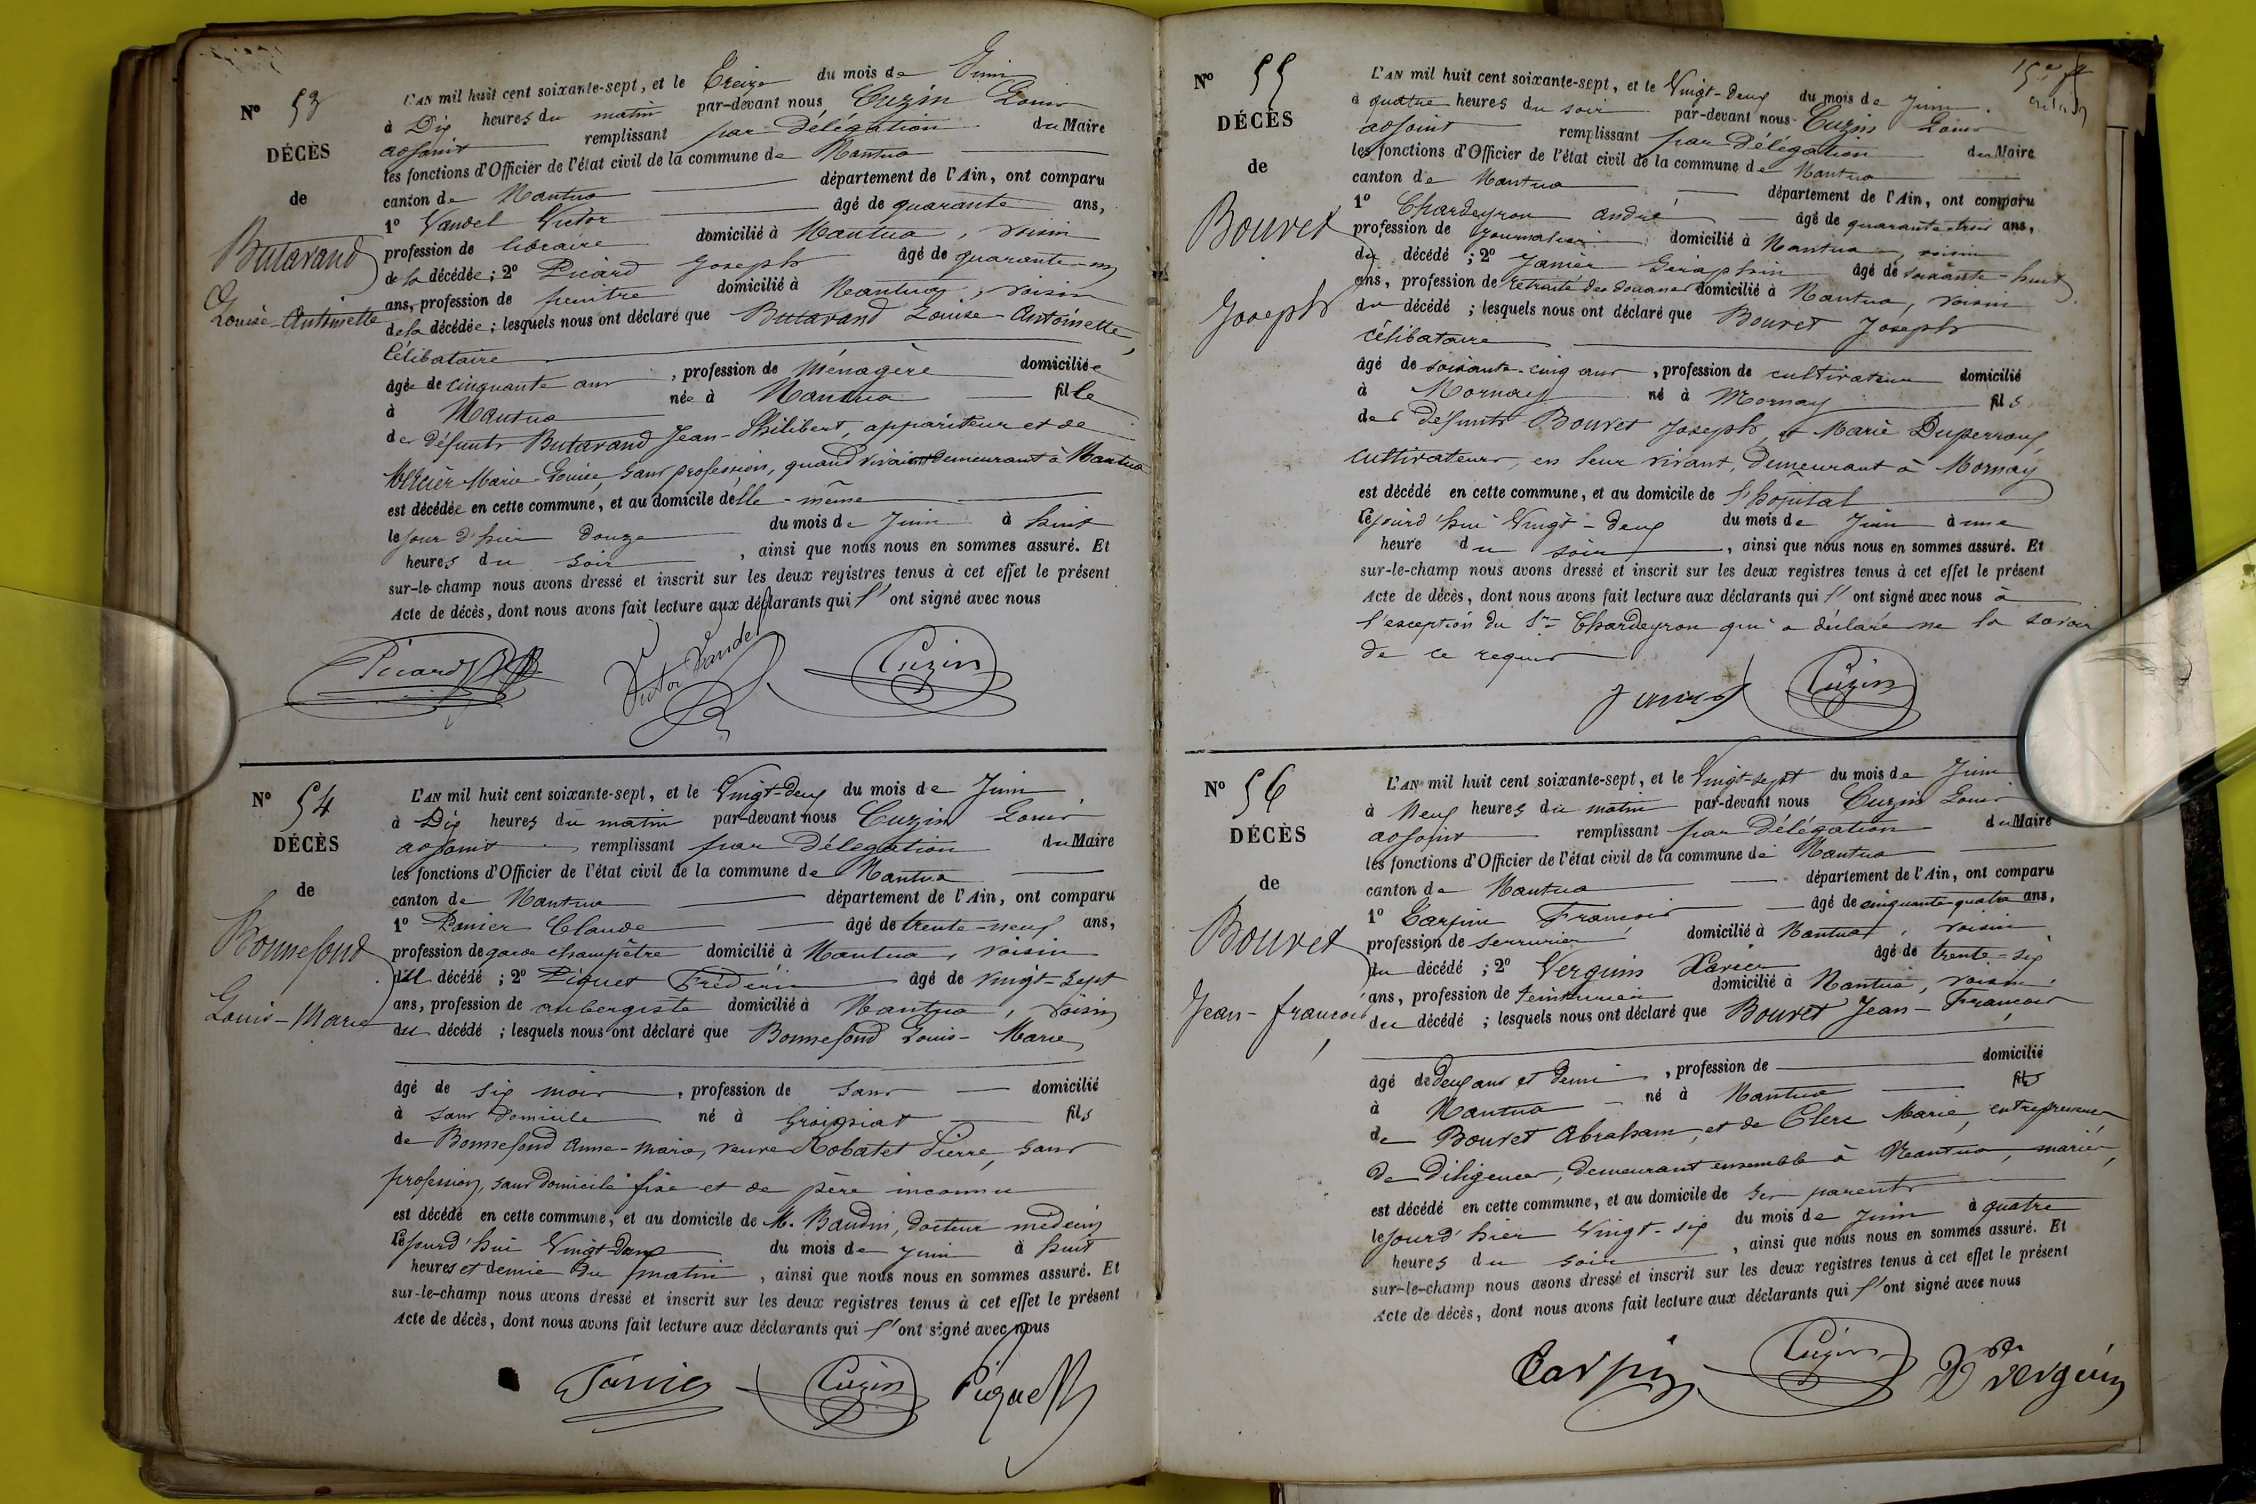 N° 53
DÉCÈS
de
Butavand
Louise-Antoinette
L'AN mil huit cent soixante-sept, et le Treize du mois de Juin
à Dix heures du matin par-devant nous Cuzin Louis
adjoint remplissant par délégation du Maire
les fonctions d'Officier de l'état civil de la commune de Nantua
canton de Nantua département de l'Ain, ont comparu
1° Vandel Victor âgé de quarante ans,
profession de libraire domicilié à Nantua, voisin
de la décédée ; 2° Picard Joseph âgé de quarante-un
ans, profession de peintre domicilié à Nantua, voisin
de la décédée ; lesquels nous ont déclaré que Butavand Louise-Antoinette,
Célibataire
âgée de cinquante ans, profession de Ménagère domiciliée
à Nantua née à Nantua fille
des défunts Butavand Jean-Philibert, appariteur et de
Mercier Marie-Louise, sans profession, quand vivaient demeurant à Nantua
est décédée en cette commune, et au domicile d'elle-même
le jour d'hier douze du mois de Juin à huit
heures du soir, ainsi que nous nous en sommes assuré. Et
sur-le-champ nous avons dressé et inscrit sur les deux registres tenus à cet effet le présent
Acte de décès, dont nous avons fait lecture aux déclarants qui l'ont signé avec nous
Picard Victor Vandel Cuzin
N° 54
DÉCÈS
de
Bonnefond
Louis-Marie
L'AN mil huit cent soixante-sept, et le Vingt-deux du mois de Juin
à Dix heures du matin par-devant nous Cuzin Louis
adjoint remplissant par délégation du Maire
les fonctions d'Officier de l'état civil de la commune de Nantua
canton de Nantua département de l'Ain, ont comparu
1° Panier Claude âgé de trente-neuf ans,
profession de garde champêtre domicilié à Nantua, voisin
du décédé ; 2° Piquet Frédéric âgé de vingt-sept
ans, profession de aubergiste domicilié à Nantua, voisin
du décédé ; lesquels nous ont déclaré que Bonnefond Louis-Marie
âgé de six mois, profession de sans domicilié
à sans domicile né à Groissiat fils
de Bonnefond Anne-Marie, veuve Robatet Pierre, sans
profession, sans domicile fixe et de père inconnu
est décédé en cette commune, et au domicile de M. Baudin, docteur médecin
le jourd'hui Vingt-Deux du mois de Juin à huit
heures et demie du matin, ainsi que nous nous en sommes assuré. Et
sur-le-champ nous avons dressé et inscrit sur les deux registres tenus à cet effet le présent
Acte de décès, dont nous avons fait lecture aux déclarants qui l'ont signé avec nous
Panier Cuzin Piquet
N° 55
DÉCÈS
de
Bouvet
Joseph
L'AN mil huit cent soixante-sept, et le Vingt-deux du mois de Juin
à quatre heures du soir par-devant nous Cuzin Louis
adjoint remplissant par délégation du Maire
les fonctions d'Officier de l'état civil de la commune de Nantua
canton de Nantua département de l'Ain, ont comparu
1° Chardeyron André âgé de quarante-trois ans,
profession de journalier domicilié à Nantua, voisin
du décédé ; 2° Janier Séraphin âgé de soixante-huit
ans, profession de retraité des douanes domicilié à Nantua, voisin
du décédé ; lesquels nous ont déclaré que Bouvet Joseph
célibataire
âgé de soixante-cinq ans, profession de cultivateur domicilié
à Mornay né à Mornay fils
des défunts Bouvet Joseph, et Marie Duperroux,
cultivateurs, en leur vivant, demeurant à Mornay
est décédé en cette commune, et au domicile de l'hôpital
le jourd'hui Vingt-deux du mois de Juin à une
heure du soir, ainsi que nous nous en sommes assuré. Et
sur-le-champ nous avons dressé et inscrit sur les deux registres tenus à cet effet le présent
Acte de décès, dont nous avons fait lecture aux déclarants qui l'ont signé avec nous à
l'exception du Sr Chardeyron qui a déclaré ne le savoir
de ce requis
Janier Cuzin
N° 56
DÉCÈS
de
Bouvet
Jean-François
L'AN mil huit cent soixante-sept, et le Vingt-sept du mois de Juin
à Neuf heures du matin par-devant nous Cuzin Louis
adjoint remplissant par délégation du Maire
les fonctions d'Officier de l'état civil de la commune de Nantua
canton de Nantua département de l'Ain, ont comparu
1° Carpin François âgé de cinquante-quatre ans,
profession de serrurier domicilié à Nantua, voisin
du décédé ; 2° Verguin Xavier âgé de trente-six
ans, profession de teinturier domicilié à Nantua, voisin
du décédé ; lesquels nous ont déclaré que Bouvet Jean-François
âgé de deux ans et demi, profession de domicilié
à Nantua né à Nantua fils
de Bouvet Abraham, et de Clerc Marie, entrepreneur
de Diligences, demeurant ensemble à Nantua, mariés,
est décédé en cette commune, et au domicile de ses parents
le jourd'hier Vingt-six du mois de Juin à quatre
heures du soir, ainsi que nous nous en sommes assuré. Et
sur-le-champ nous avons dressé et inscrit sur les deux registres tenus à cet effet le présent
Acte de décès, dont nous avons fait lecture aux déclarants qui l'ont signé avec nous
Carpin Cuzin Verguin